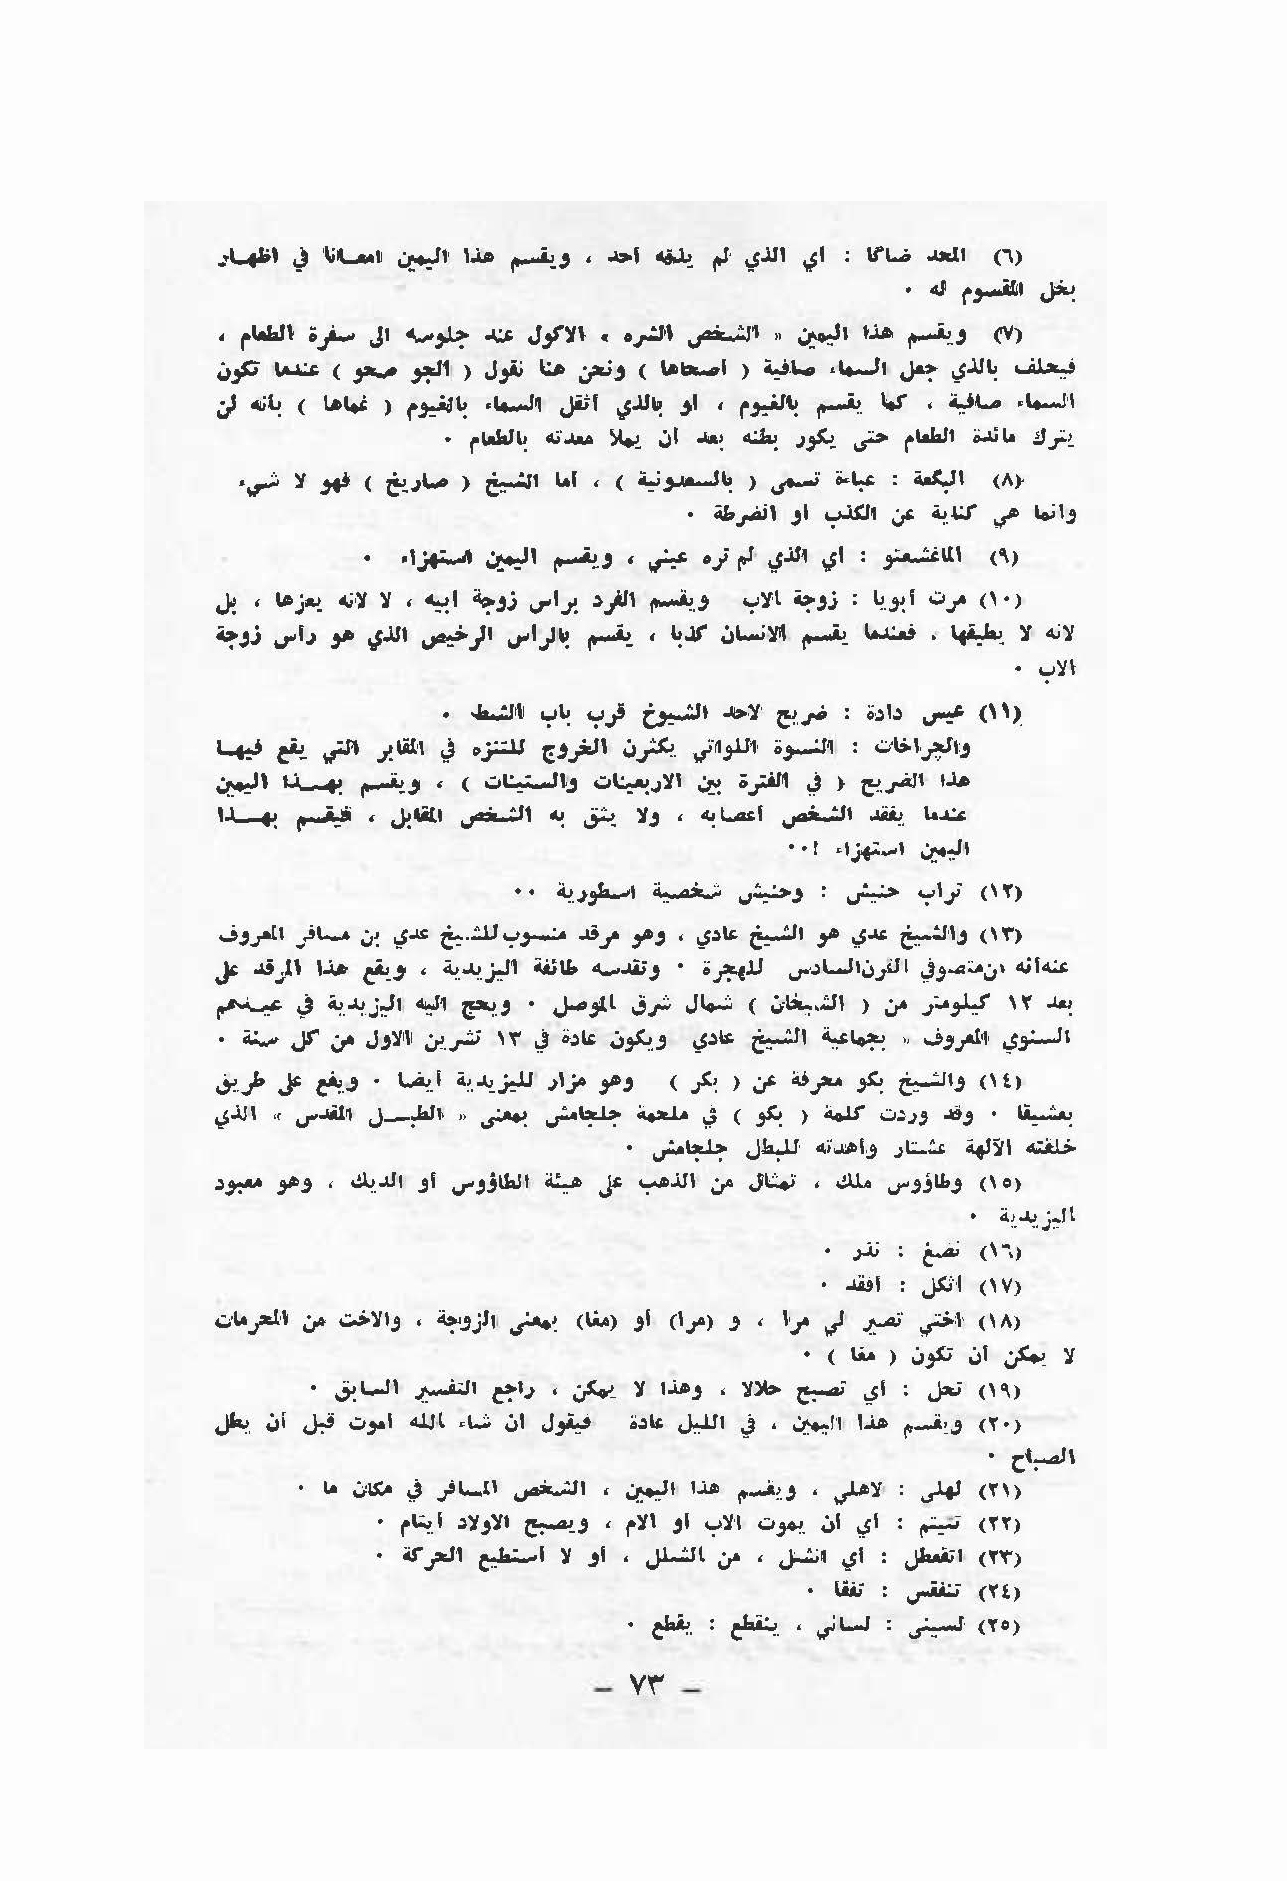 (٦) المحد ضاگا : أي الذي لم يذقه أحد ، ويقسم هذا اليمين امعانا في اظهار
بخل المقسوم له ٠
(٧) ويقسم هذا اليمين « الشخص الشره » الاكول عند جلوسه الى سفرة الطعام ،
فيحلف بالذي جعل السماء صافية ( أصحاها ) ونحن هنا نقول ( الجو صحو ) عندما تكون
السماء صافية ، كما يقسم بالغيوم ، أو بالذي أثقل السماء بالغيوم ( غماها ) بأنه لن
يترك مائدة الطعام حتى يكور بطنه بعد أن يملأ معدته بالطعام ٠
(٨) البگعة : عباءة تسمى ( بالسعدونية ) ، أما الشيخ ( صاريخ ) فهو لا شيء
وانما هي كناية عن الكذب أو الضرطة ٠
(٩) الماغشعتو : أي الذي لم تره عيني ، ويقسم اليمين استهزاء ٠
(١٠) مرت أبويا : زوجة الاب ويقسم الفرد برأس زوجة أبيه ، لا لانه يعزها ، بل
لانه لا يطيقها ، فعندما يقسم الانسان كذبا ، يقسم بالرأس الرخيص الذي هو رأس زوجة
الاب ٠
(١١) عيس دادة : ضريح لاحد الشيوخ قرب باب الشط ٠
والچراخات : النسوة اللواتي يكثرن الخروج للتنزه في المقابر التي يقع فيها
هذا الضريح ( في الفترة بين الاربعينات والستينات ) ، ويقسم بهذا اليمين
عندما يفقد الشخص أعصابه ، ولا يثق به الشخص المقابل ، فيقسم بهذا
اليمين استهزاء !٠٠
(١٢) تراب حنيش : وحنيش شخصية اسطورية ٠٠
(١٣) والشيخ عدي هو الشيخ عادي ، وهو مرقد منسوب للشيخ عدي بن مسافر المعروف
عنه أنه من متصوفي القرن السادس للهجرة ٠ وتقدسه طائفة اليزيدية ، ويقع هذا المرقد على
بعد ١٢ كيلومتر من ( الشيخان ) شمال شرق الموصل ٠ ويحج اليه اليزيدية في عيدهم
السنوي المعروف « بجماعية الشيخ عادي ويكون عادة في ١٣ تشرين الاول من كل سنة ٠
(١٤) والشيخ بكو محرفة عن ( بكر ) وهو مزار لليزيدية أيضا ٠ ويقع على طريق
بعشيقا ٠ وقد وردت كلمة ( بكو ) في ملحمة جلجامش بمعنى « الطبل المقدس » الذي
خلفته الآلهة عشتار وأهدته للبطل جلجامش ٠
(١٥) وطاؤوس ملك ، تمثال من الذهب على هيئة الطاؤوس أو الديك ، وهو معبود
اليزيدية ٠
(١٦) نصغ : نذر ٠
(١٧) اثكل : أفقد ٠
(١٨) اختي تصير لي مرا ، و (مرا) أو (مغا) بمعنى الزوجة ، والاخت من المحرمات
لا يمكن أن تكون ( مغا ) ٠
(١٩) تحل : أي تصبح حلالا ، وهذا لا يمكن ، راجع التفسير السابق ٠
(٢٠) ويقسم هذا اليمين ، في الليل عادة فيقول ان شاء الله اموت قبل أن يطل
الصباح ٠
(٢١) لهلى : لاهلي ، ويقسم هذا اليمين ، الشخص المسافر في مكان ما ٠
(٢٢) تتيتم : أي أن يموت الاب أو الام ، ويصبح الاولاد أيتام ٠
(٢٣) اتقعطل : أي انشل ، من الشلل ، أو لا أستطيع الحركة ٠
(٢٤) تنفقس : تفقأ ٠
(٢٥) لسينى : لساني ، ينقطع : يقطع ٠
– ٧٣ –